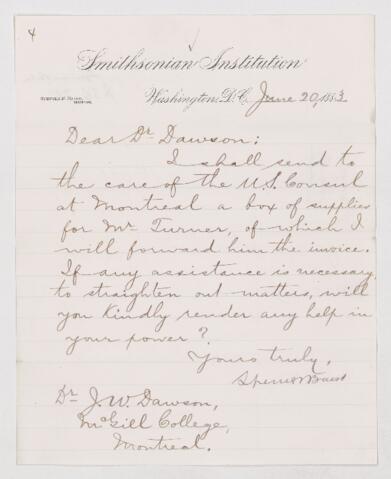 4
Smithsonian Institution
Washington, D.C. June 20, 1883
Dear Dr Dawson:
I shall send to
the care of the U.S. Consul
at Montreal a box of supplies
for Mr Turner, of which I
will forward him the invoice.
If any assistance is necessary
to straighten out matters, will
you kindly render any help in
your power?
Yours truly,
Spencer F Baird
Dr J.W. Dawson,
McGill College,
Montreal.